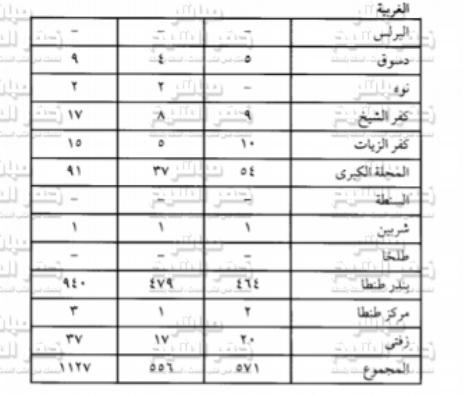 الغربية
البرلس - - -
دسوق ٥ ٤ ٩
فوه - ٢ ٢
كفر الشيخ ٩ ٨ ١٧
كفر الزيات ١٠ ٥ ١٥
المحلة الكبرى ٥٤ ٣٧ ٩١
السنطة - - -
شربين ١ ١ ١
طلخا - - -
بندر طنطا ٤٦٤ ٤٧٩ ٩٤٠
مركز طنطا ٢ ١ ٣
زفتى ٢٠ ١٧ ٣٧
المجموع ٥٧١ ٥٥٦ ١١٢٧